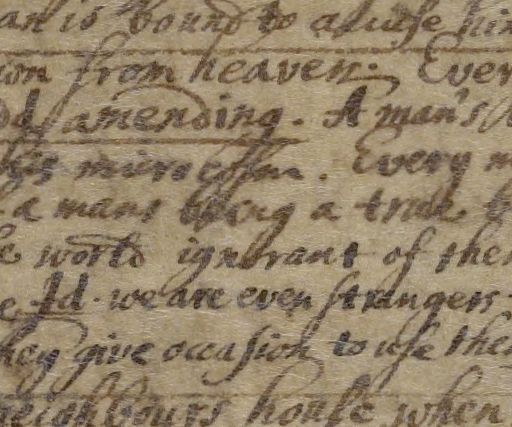 an is bound to abuse him
ion from heaven. Ever
amending. A man's
Every m
a mans being a true
world ignorant of the
Id. we are even strangers
they give occasion to use the
neighbours house when